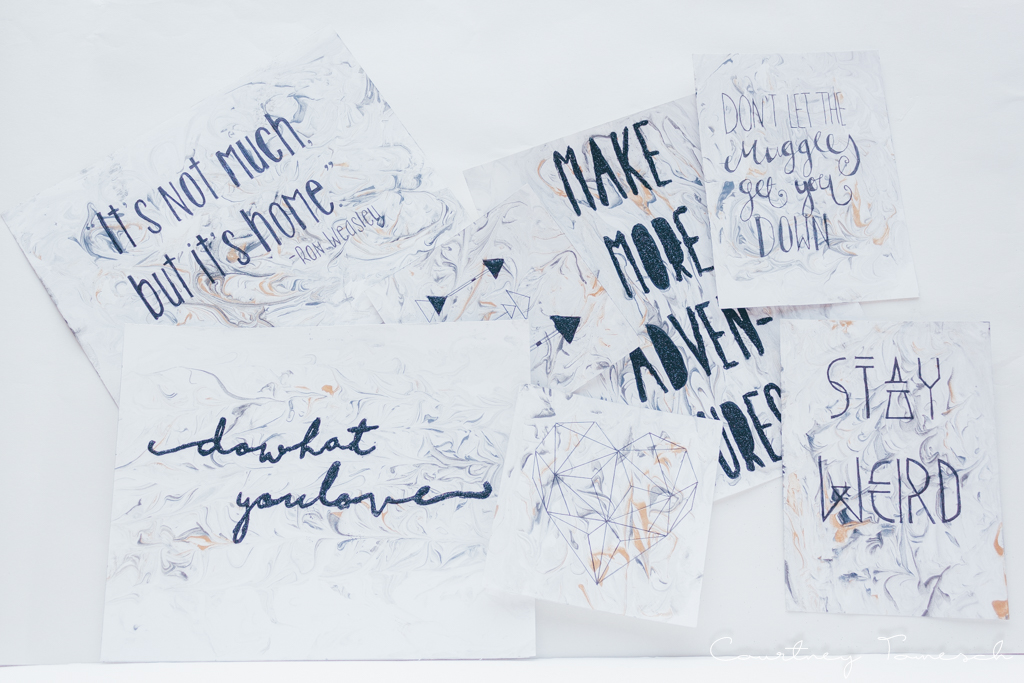 "It's NOT much,
but it's home"
-RON WEASLEY
MAKE
MORE
ADVEN-
URES
DON'T LET THE
Muggles
get you
DOWN
do what
you love
STAY
WEIRD
Courtney Tomesch